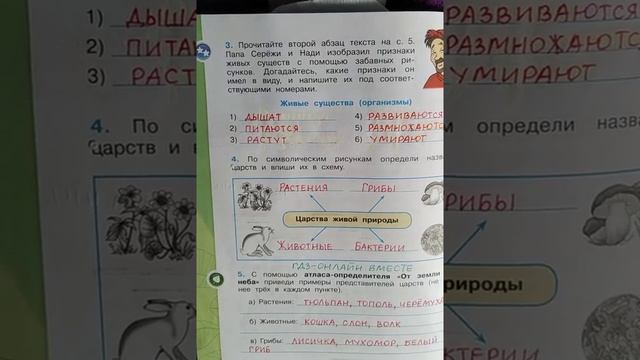 3. Прочитайте второй абзац текста на с. 5.
Папа Серёжи и Нади изобразил признаки
живых существ с помощью забавных ри-
сунков. Догадайтесь, какие признаки он
имел в виду, и напишите их под соответ-
ствующими номерами.
Живые существа (организмы)
1) ДЫШАТ 4) РАЗВИВАЮТСЯ
2) ПИТАЮТСЯ 5) РАЗМНОЖАЮТС
3) РАСТУТ 6) УМИРАЮТ
4. По символическим рисункам определи назв
царств и впиши их в схему.
РАСТЕНИЯ ГРИБЫ
Царства живой природы
ЖИВОТНЫЕ БАКТЕРИИ
ГДЗ-ОНЛАЙН ВМЕСТЕ
5. С помощью атласа-определителя «От земли
неба» приведи примеры представителей царств (не
нее трёх в каждом пункте).
а) Растения: ТЮЛЬПАН, ТОПОЛЬ, ЧЕРЁМУХА
б) Животные: КОШКА, СЛОН, ВОЛК
в) Грибы: ЛИСИЧКА, МУХОМОР, БЕЛЫЙ
ГРИБ
1) ДЫШАТ
2) ПИТАЮ
3) РАСТ
4. По си
царств и в
РАЗВИВАЮТСЯ
РАЗМНОЖАЮТС
УМИРАЮТ
определи назва
РИБЫ
природы